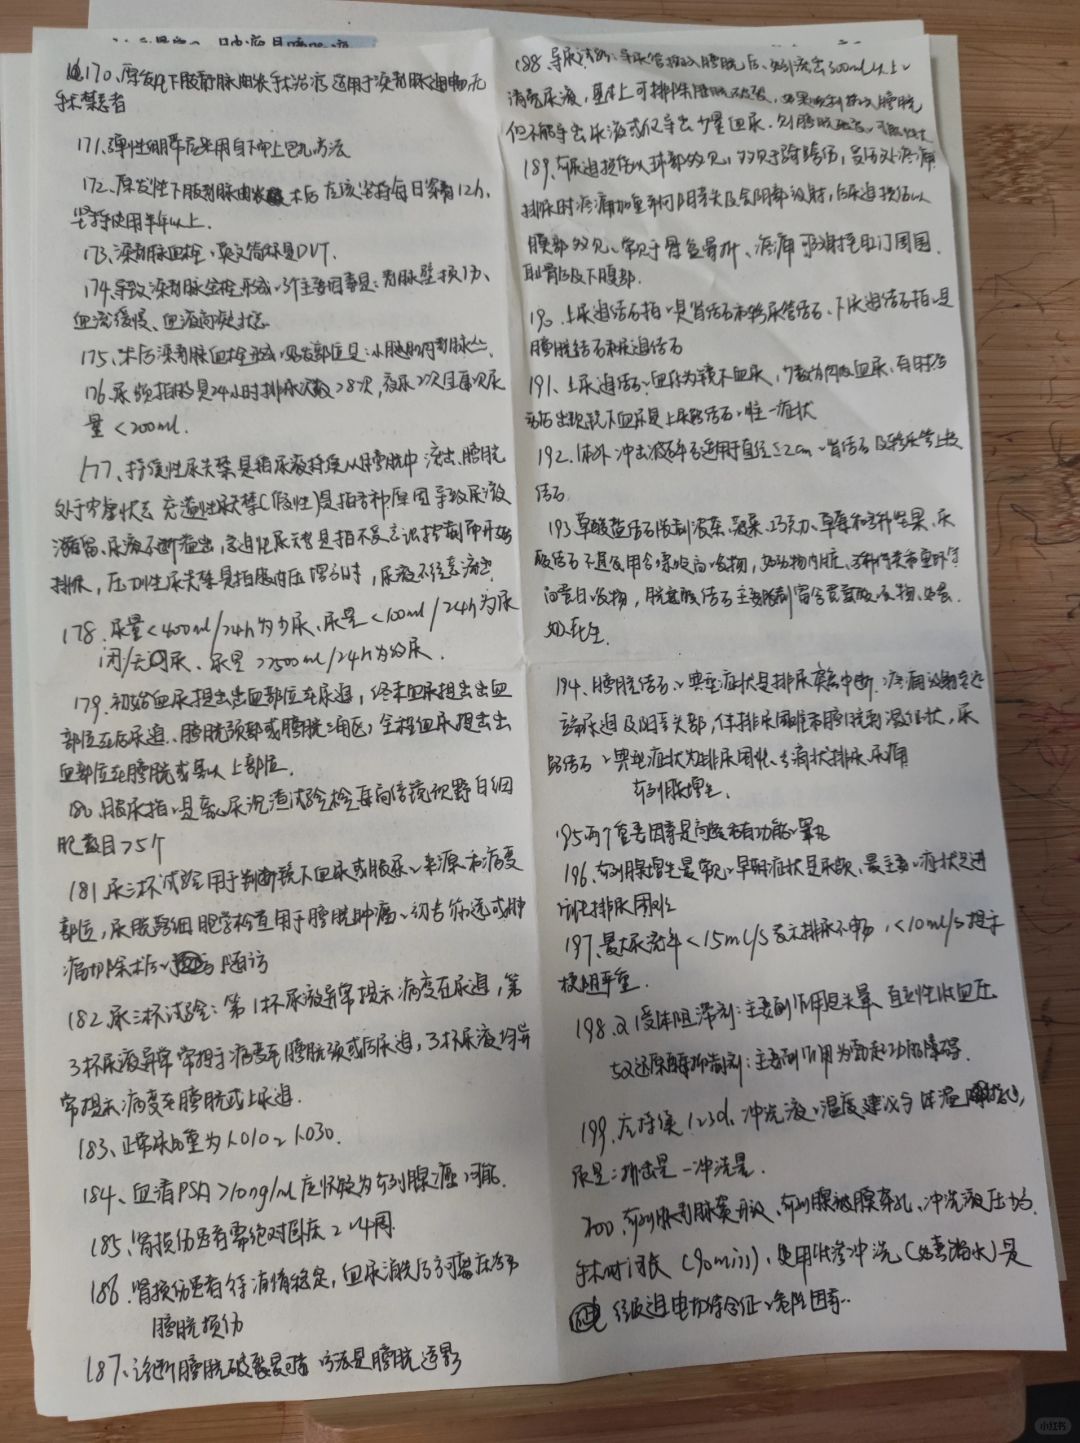 170、原发性下肢静脉曲张手术治疗适用于深静脉通畅,无
手术禁忌者
171、弹性绷带应采用自下而上包扎方法
172、原发性下肢静脉曲张术后应该坚持每日穿着12h,
坚持使用半年以上.
173、深静脉血栓、英文简称是DVT.
174、导致深静脉血栓形成、3个主要因素是:静脉壁损伤、
血流缓慢、血液高凝状态
175、术后深静脉血栓形成、好发部位是:小腿肌肉静脉丛.
176、尿频指的是24小时排尿次数>8次,夜尿>2次且每次尿
量<200ml.
177、持续性尿失禁是指尿液持续从膀胱中流出、膀胱
处于空虚状态 充溢性尿失禁(假性)是指各种原因导致尿液
潴留、尿液不断溢出,急迫性尿失禁是指不受意识控制而开始
排尿,压力性尿失禁是指腹内压增高时,尿液不经意流出
178、尿量<400ml/24h为少尿、尿量<100ml/24h为尿
闭/无尿、尿量>2500ml/24h为多尿.
179、初始血尿提示出血部位在尿道,终末血尿提示出血
部位在后尿道、膀胱颈部或膀胱三角区,全程血尿提示出
血部位在膀胱或其以上部位.
180、脓尿指、是离心尿沉渣试验检每高倍镜视野白细
胞数目>5个
181、尿三杯试验用于判断镜下血尿或脓尿、来源和病变
部位,尿脱落细胞学检查用于膀胱肿瘤、初步筛选或肿
瘤切除术后、随访
182、尿三杯试验:第1杯尿液异常提示病变在尿道,第
3杯尿液异常常提示病变在膀胱颈或后尿道,3杯尿液均异
常提示病变在膀胱或上尿道.
183、正常尿比重为1.010~1.030.
184、血清PSA>10ng/ml应怀疑为前列腺癌、可能
185、肾损伤患者需绝对卧床2~4周
186、肾损伤患者待病情稳定,血尿消失后可离床活动
膀胱损伤
187、诊断膀胱破裂最可靠方法是膀胱造影
188、导尿试验、导尿管插入膀胱后、如引流出300ml以上、
清亮尿液,基本上可排除膀胱破裂,如果顺利插入膀胱
但不能导出尿液或仅导出少量血尿,则膀胱破裂、可能性大
189、前尿道损伤以球部多见,多见于骑跨伤,受伤处疼痛
排尿时疼痛加重并向阴茎头及会阴部放射,后尿道损伤以
膜部多见、常见于骨盆骨折、疼痛可放射至肛门周围
耻骨后及下腹部.
190、上尿道结石指、是肾结石和输尿管结石、下尿道结石指、是
膀胱结石和尿道结石
191、上尿道结石、血尿为镜下血尿,少数为肉眼血尿,有时活
动后出现镜下血尿是上尿路结石、惟一症状
192、体外冲击波碎石适用于直径≤2cm、肾结石及输尿管上段
结石
193、草酸盐结石限制菠菜、菠菜、巧克力、草莓和各种坚果、尿
酸结石不宜食用含嘌呤高、食物,如动物内脏、
白蛋白食物,胱氨酸结石主要限制富含蛋氨酸、食物、如蛋、
奶、花生
194、膀胱结石、典型症状是排尿突然中断、疼痛放射至远
端尿道及阴茎头部,伴排尿困难和膀胱刺激症状,尿
路结石、典型症状为排尿困难、点滴状排尿、尿痛
前列腺增生
195、两个重要因素是高龄和有功能、睾丸
196、前列腺增生最常见、早期症状是尿频、最主要、症状是进
行性排尿困难
197、最大尿流率<15ml/s表示排尿不畅,<10ml/s提示
梗阻严重.
198、α1受体阻滞剂:主要副作用是头晕、直立性低血压
5α还原酶抑制剂:主要副作用为勃起功能障碍.
199、应持续1~3d,冲洗液、温度建议与体温接近,
尿量=排出量-冲洗量.
200、前列腺静脉窦开放、前列腺被膜穿孔、冲洗液压力高、
手术时间长(90min),使用低渗冲洗(如蒸馏水)是
经尿道电切综合征、危险因素.
小红书